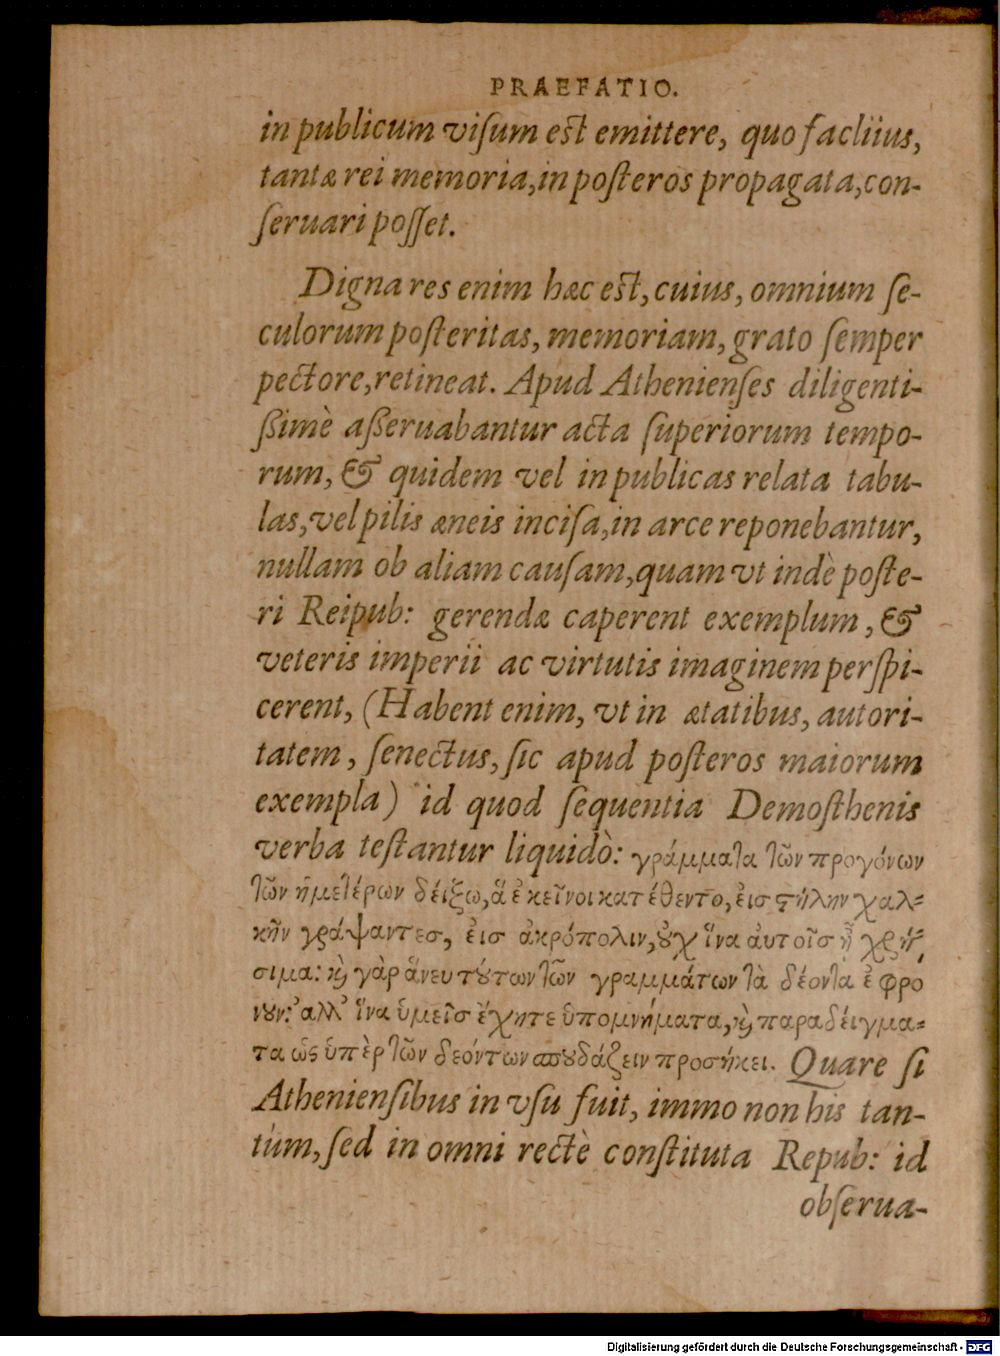 PRAEFATIO.
in publicum viſum est emittere, quo facliius,
tantæ rei memoria, in poſteros propagata, con-
ſeruari poſſet.
Digna res enim hæc est, cuius, omnium ſe-
culorum poſteritas, memoriam, grato ſemper
pectore, retineat. Apud Athenienſes diligenti-
ßimè aßeruabantur acta ſuperiorum tempo-
rum, & quidem vel in publicas relata tabu-
las, vel pilis æneis inciſa, in arce reponebantur,
nullam ob aliam cauſam, quam vt indè poſte-
ri Reipub: gerendæ caperent exemplum, &
veteris imperii ac virtutis imaginem perſpi-
cerent, (Habent enim, vt in ætatibus, autori-
tatem, ſenectus, ſic apud poſteros maiorum
exempla) id quod ſequentia Demoſthenis
verba teſtantur liquidò: γράμματα τῶν προγόνων
τῶν ἡμετέρων δέιξω, ἅ ἐκεῖνοι κατέθεντο, ἐισ στήλην χαλ-
κῆν γράψαντεσ, ἐισ ἀκρόπολιν, οὐχ ἵνα ἀυτοῖσ ᾖ χρή-
σιμα: καὶ γὰρ ἄνευ τούτων τῶν γραμμάτων τὰ δέοντα ἐφρο
νουν: ἀλλ᾽ ἵνα ὑμεῖσ ἔχητε ὑπομνήματα, καὶ παραδέιγμα-
τα ὡς ὑπὲρ τῶν δεόντων σπουδάζειν προσήκει. Quare ſi
Athenienſibus in vſu fuit, immo non his tan-
tùm, ſed in omni rectè conſtituta Repub: id
obſerua-
Digitalisierung gefördert durch die Deutsche Forschungsgemeinschaft - DFG